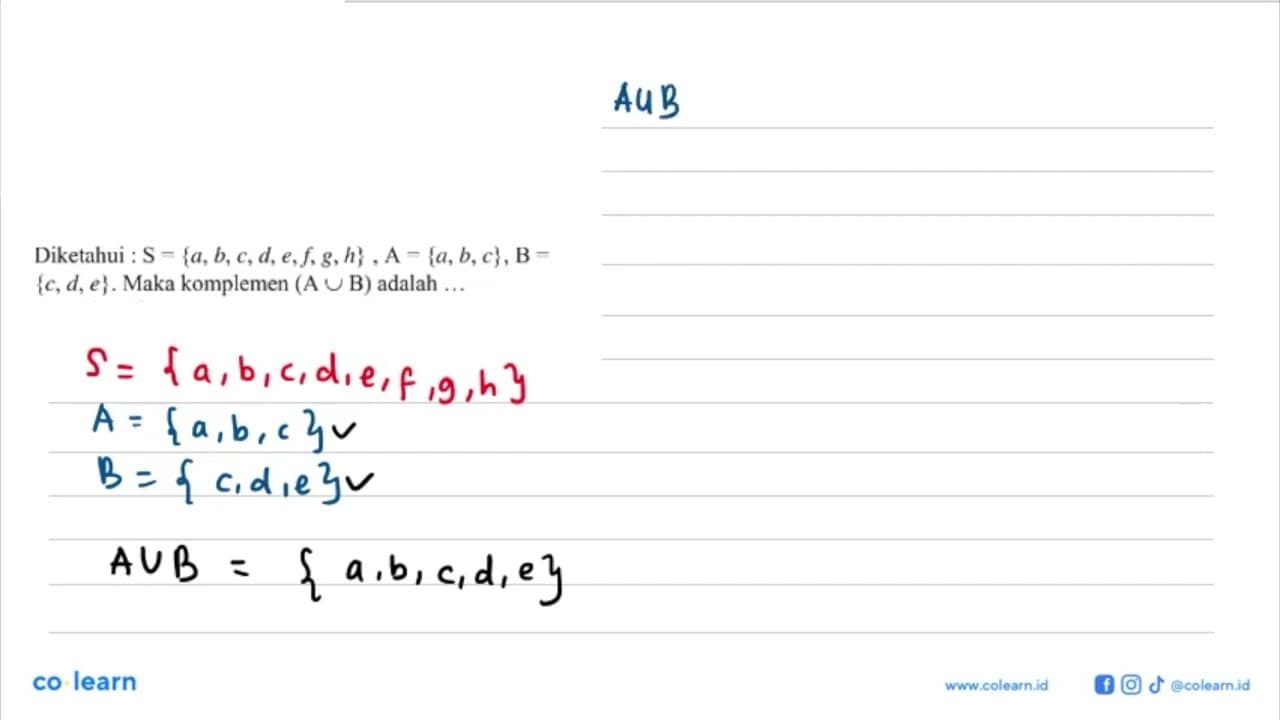 A∪B
Diketahui : S = {a, b, c, d, e, f, g, h} , A = {a, b, c}, B =
{c, d, e}. Maka komplemen (A ∪ B) adalah ...
S = {a, b, c, d, e, f, g, h}
A = {a, b, c} ✓
B = {c, d, e} ✓
A∪B = {a, b, c, d, e}
co·learn
www.colearn.id
@colearn.id